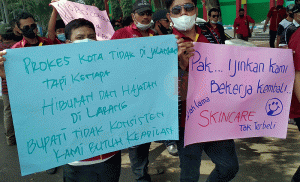 PROKES KOTA TIDAK DI JALANKAN
TAPI KENAPA
HIBURAN DAN HAJATAN
DI LARANG
BUPATI TIDAK KONSISTEN
KAMI BUTUH KEADILAN
Pak... Ijinkan kami
Bekerja Kembali
SKINCARE
Tak Terbeli